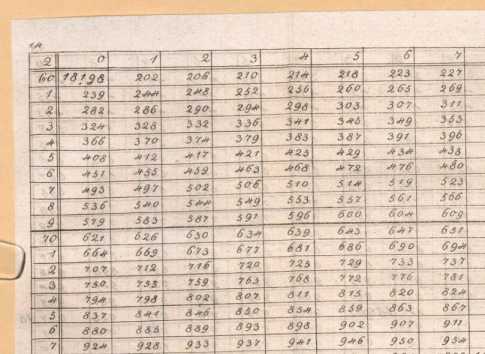 2 0 1 2 3 4 5 6 7
60 18198 202 206 210 214 218 223 227
1 239 244 248 252 256 260 265 269
2 282 286 290 294 298 303 307 311
3 324 328 332 336 341 345 349 353
4 366 370 374 379 383 387 391 396
5 408 412 417 421 425 429 434 438
6 451 455 459 463 468 472 476 480
7 493 497 502 506 510 514 519 523
8 536 540 544 549 553 557 561 566
9 579 583 587 591 596 600 604 609
70 621 626 630 634 639 643 647 651
1 664 669 673 677 681 686 690 694
2 707 712 716 720 725 729 733 737
3 750 755 759 763 768 772 776 781
4 794 798 802 807 811 815 820 824
5 837 841 846 850 854 859 863 867
6 880 885 889 893 898 902 907 911
7 924 928 933 937 941 946 950 954